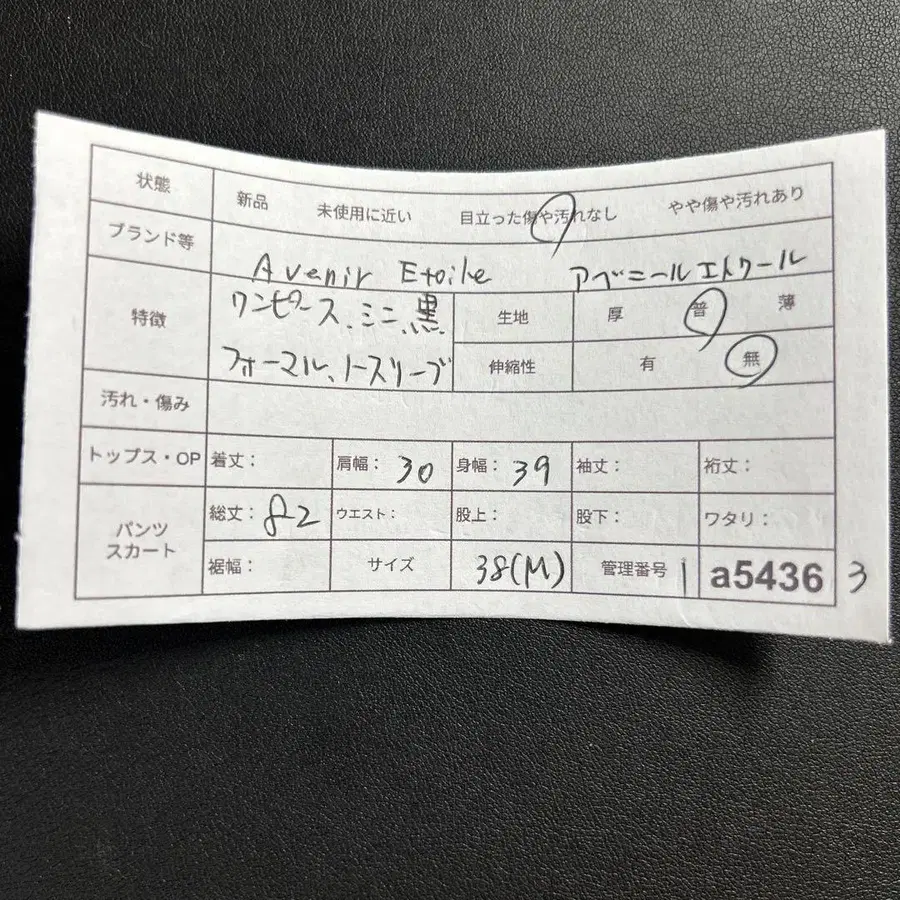 状態 新品 未使用に近い 目立った傷や汚れなし やや傷や汚れあり
ブランド等 Avenir Etoile アベニールエトワール
特徴 ワンピース、ミニ、黒、 生地 厚 普 薄
フォーマル、ノースリーブ 伸縮性 有 無
汚れ・傷み
トップス・OP 着丈: 肩幅: 30 身幅: 39 袖丈: 裄丈:
パンツ 総丈: 82 ウエスト: 股上: 股下: ワタリ:
スカート 裾幅: サイズ 38(M) 管理番号 1 a5436 3